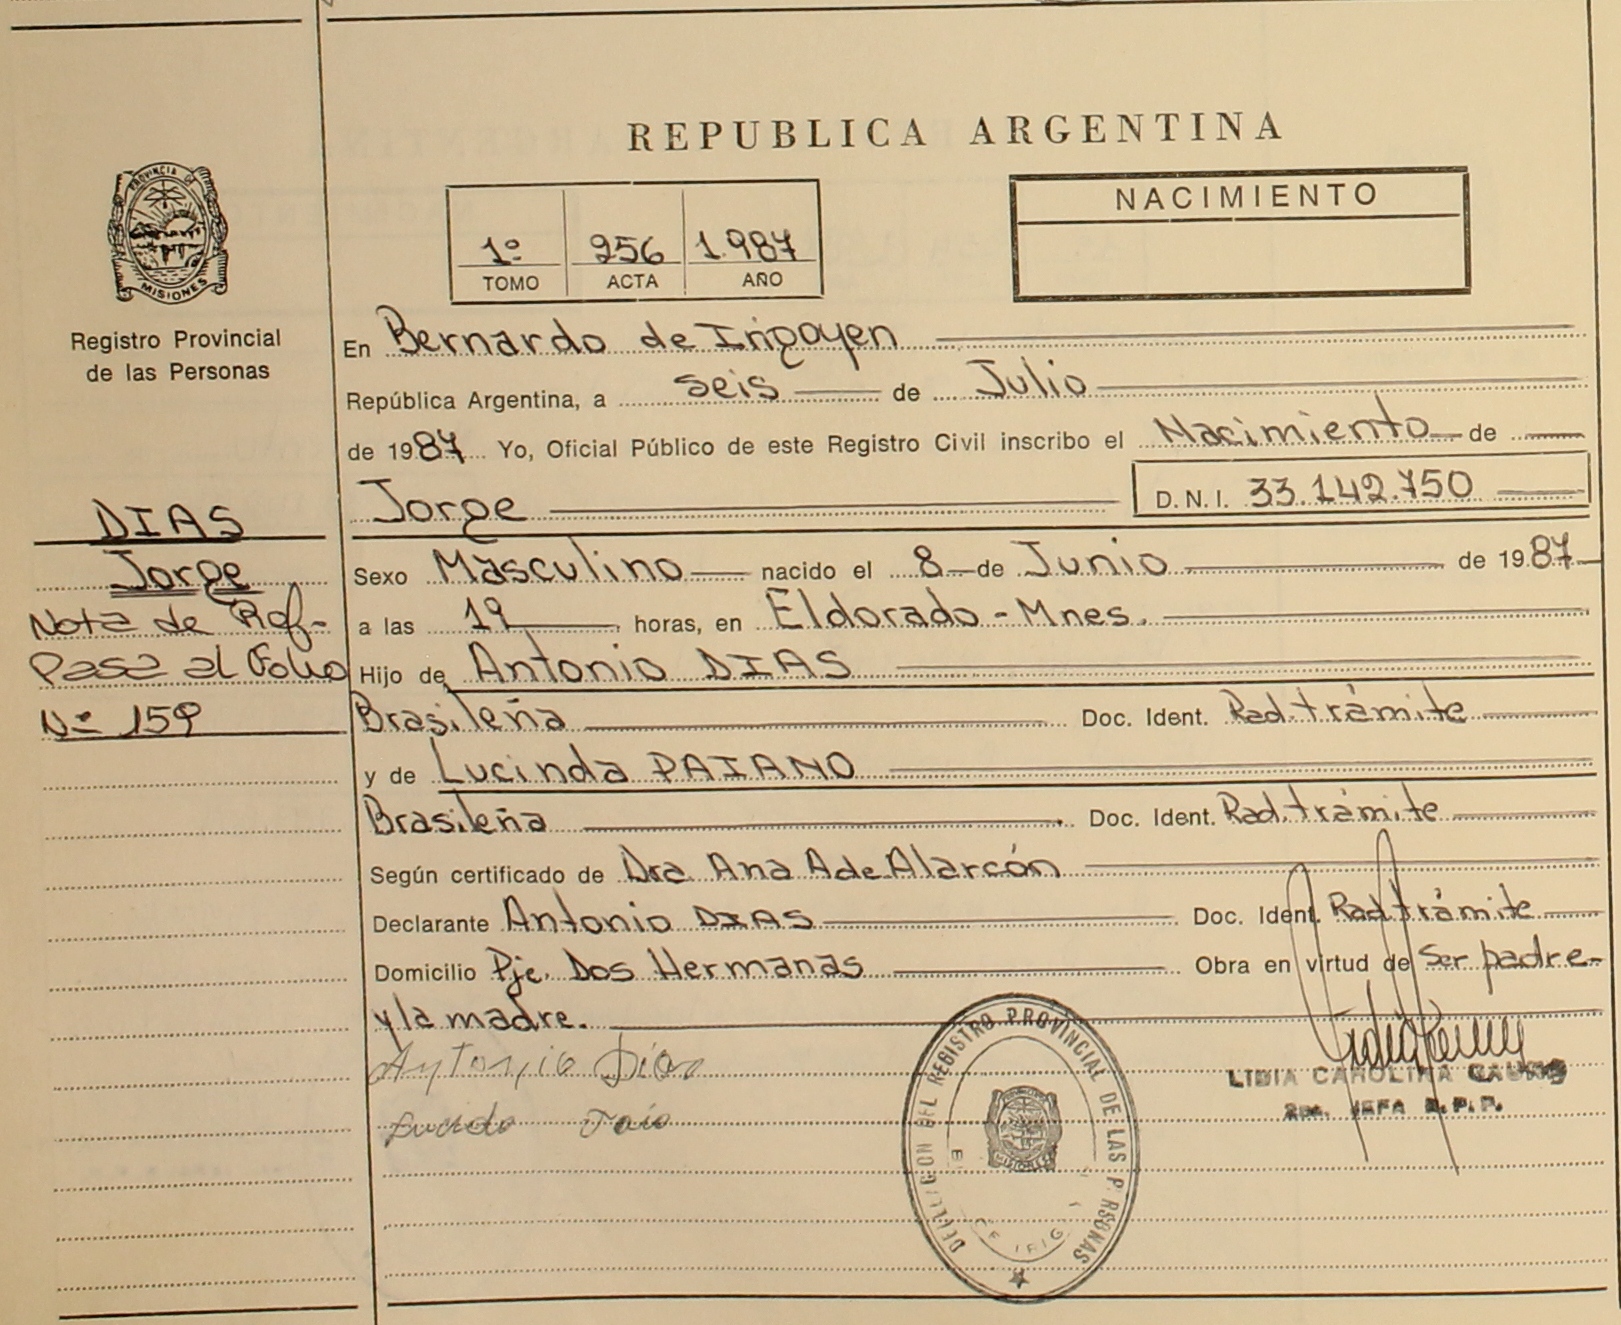 REPUBLICA ARGENTINA
PROVINCIA DE
MISIONES
Registro Provincial
de las Personas
1º 256 1.987
TOMO ACTA AÑO
NACIMIENTO
En Bernardo de Irigoyen
República Argentina, a seis de Julio
de 1987 Yo, Oficial Público de este Registro Civil inscribo el Nacimiento de
Jorge D.N.I. 33.142.750
DIAS
Jorge
Nota de Ref-
Pasa al Folio
Nº 159
Sexo Masculino nacido el 8 de Junio de 1987
a las 19 horas, en Eldorado - Mnes.
Hijo de Antonio DIAS
Brasileña Doc. Ident. Rad. trámite
y de Lucinda PAIANO
Brasileña Doc. Ident. Rad. trámite
Según certificado de Dra Ana A de Alarcón
Declarante Antonio DIAS Doc. Ident. Rad trámite
Domicilio Pje. Dos Hermanas Obra en virtud de Ser padre-
y la madre.
Antonio Dias
LIDIA CAROLINA
JEFA R.P.P.
DELEGACION DEL REGISTRO PROVINCIAL DE LAS P RSONAS